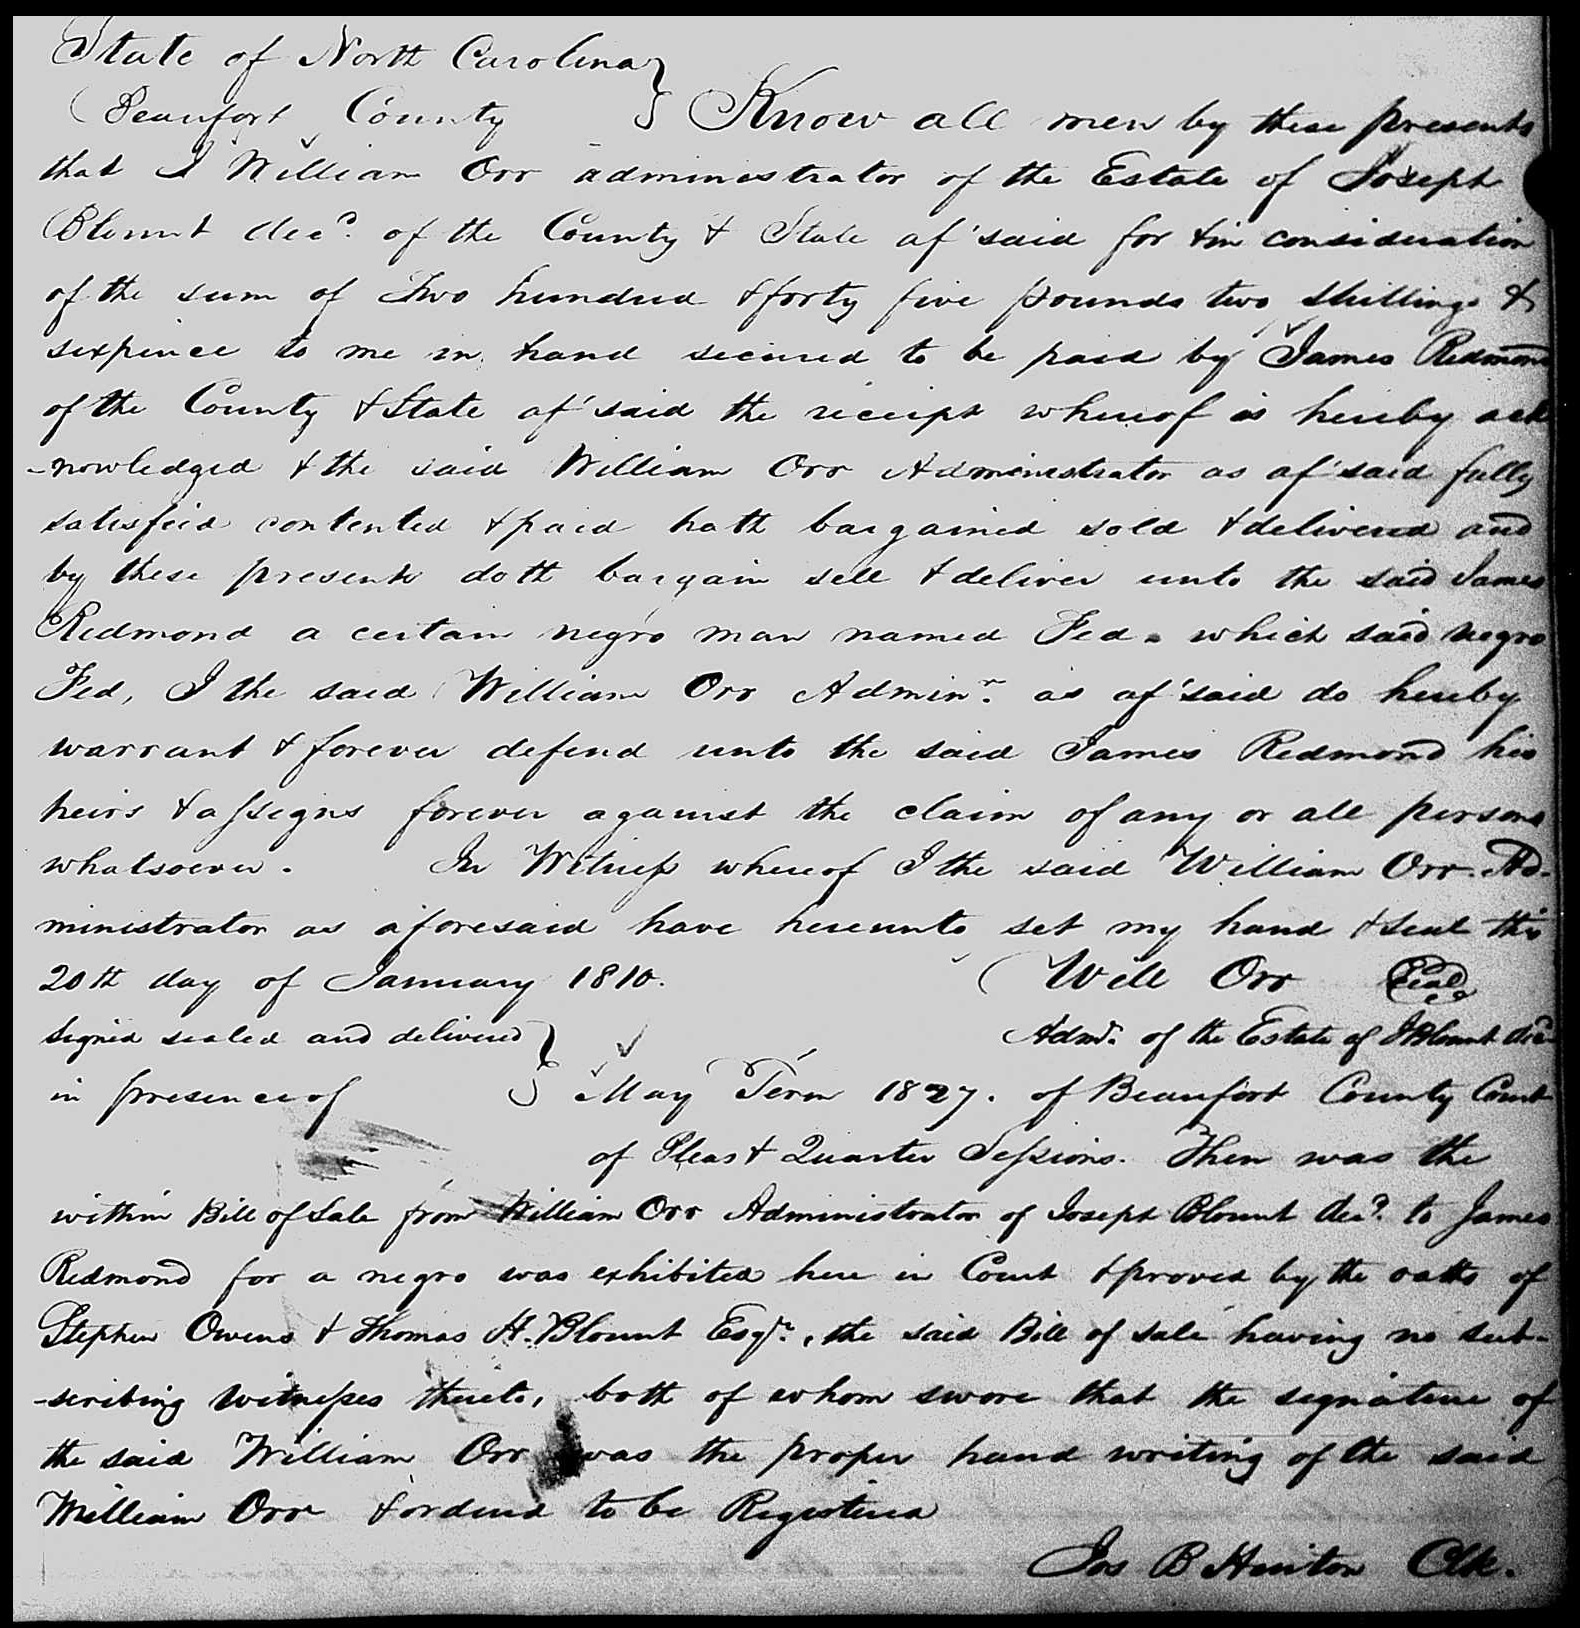 State of North Carolina }
Beaufort County } Know all men by these presents
that I William Orr administrator of the Estate of Joseph
Blount decd. of the County & State af'said for & in consideration
of the sum of Two hundred & forty five pounds two shillings &
sixpence to me in hand secured to be paid by James Redmond
of the County & State af'said the receipt whereof is hereby ack
-nowledged & the said William Orr Administrator as af'said fully
satisfeid contented & paid hath bargained sold & delivered and
by these presents doth bargain sell & deliver unto the said James
Redmond a certain negro man named Fed. which said negro
Fed, I the said William Orr Adminr. as af'said do hereby
warrant & forever defend unto the said James Redmond his
heirs & assigns forever against the claim of any or all persons
whatsoever. In Witness whereof I the said William Orr Ad-
ministrator as aforesaid have hereunto set my hand & seal this
20th day of January 1810. Will Orr Seal
Signed sealed and delivered } Admr. of the Estate of J Blount decd
in presence of } May Term 1827. of Beaufort County Court
of Pleas & Quarter Sessions. Then was the
within Bill of Sale from William Orr Administrator of Joseph Blount decd. to James
Redmond for a negro was exhibited here in Court & proved by the oaths of
Stephen Owens & Thomas H. Blount Esqr., the said Bill of sale having no sub-
-scribing witnesses thereto, both of whom swore that the signature of
the said William Orr was the proper hand writing of the said
William Orr & ordered to be Registered
Jos B Hinton Clk.